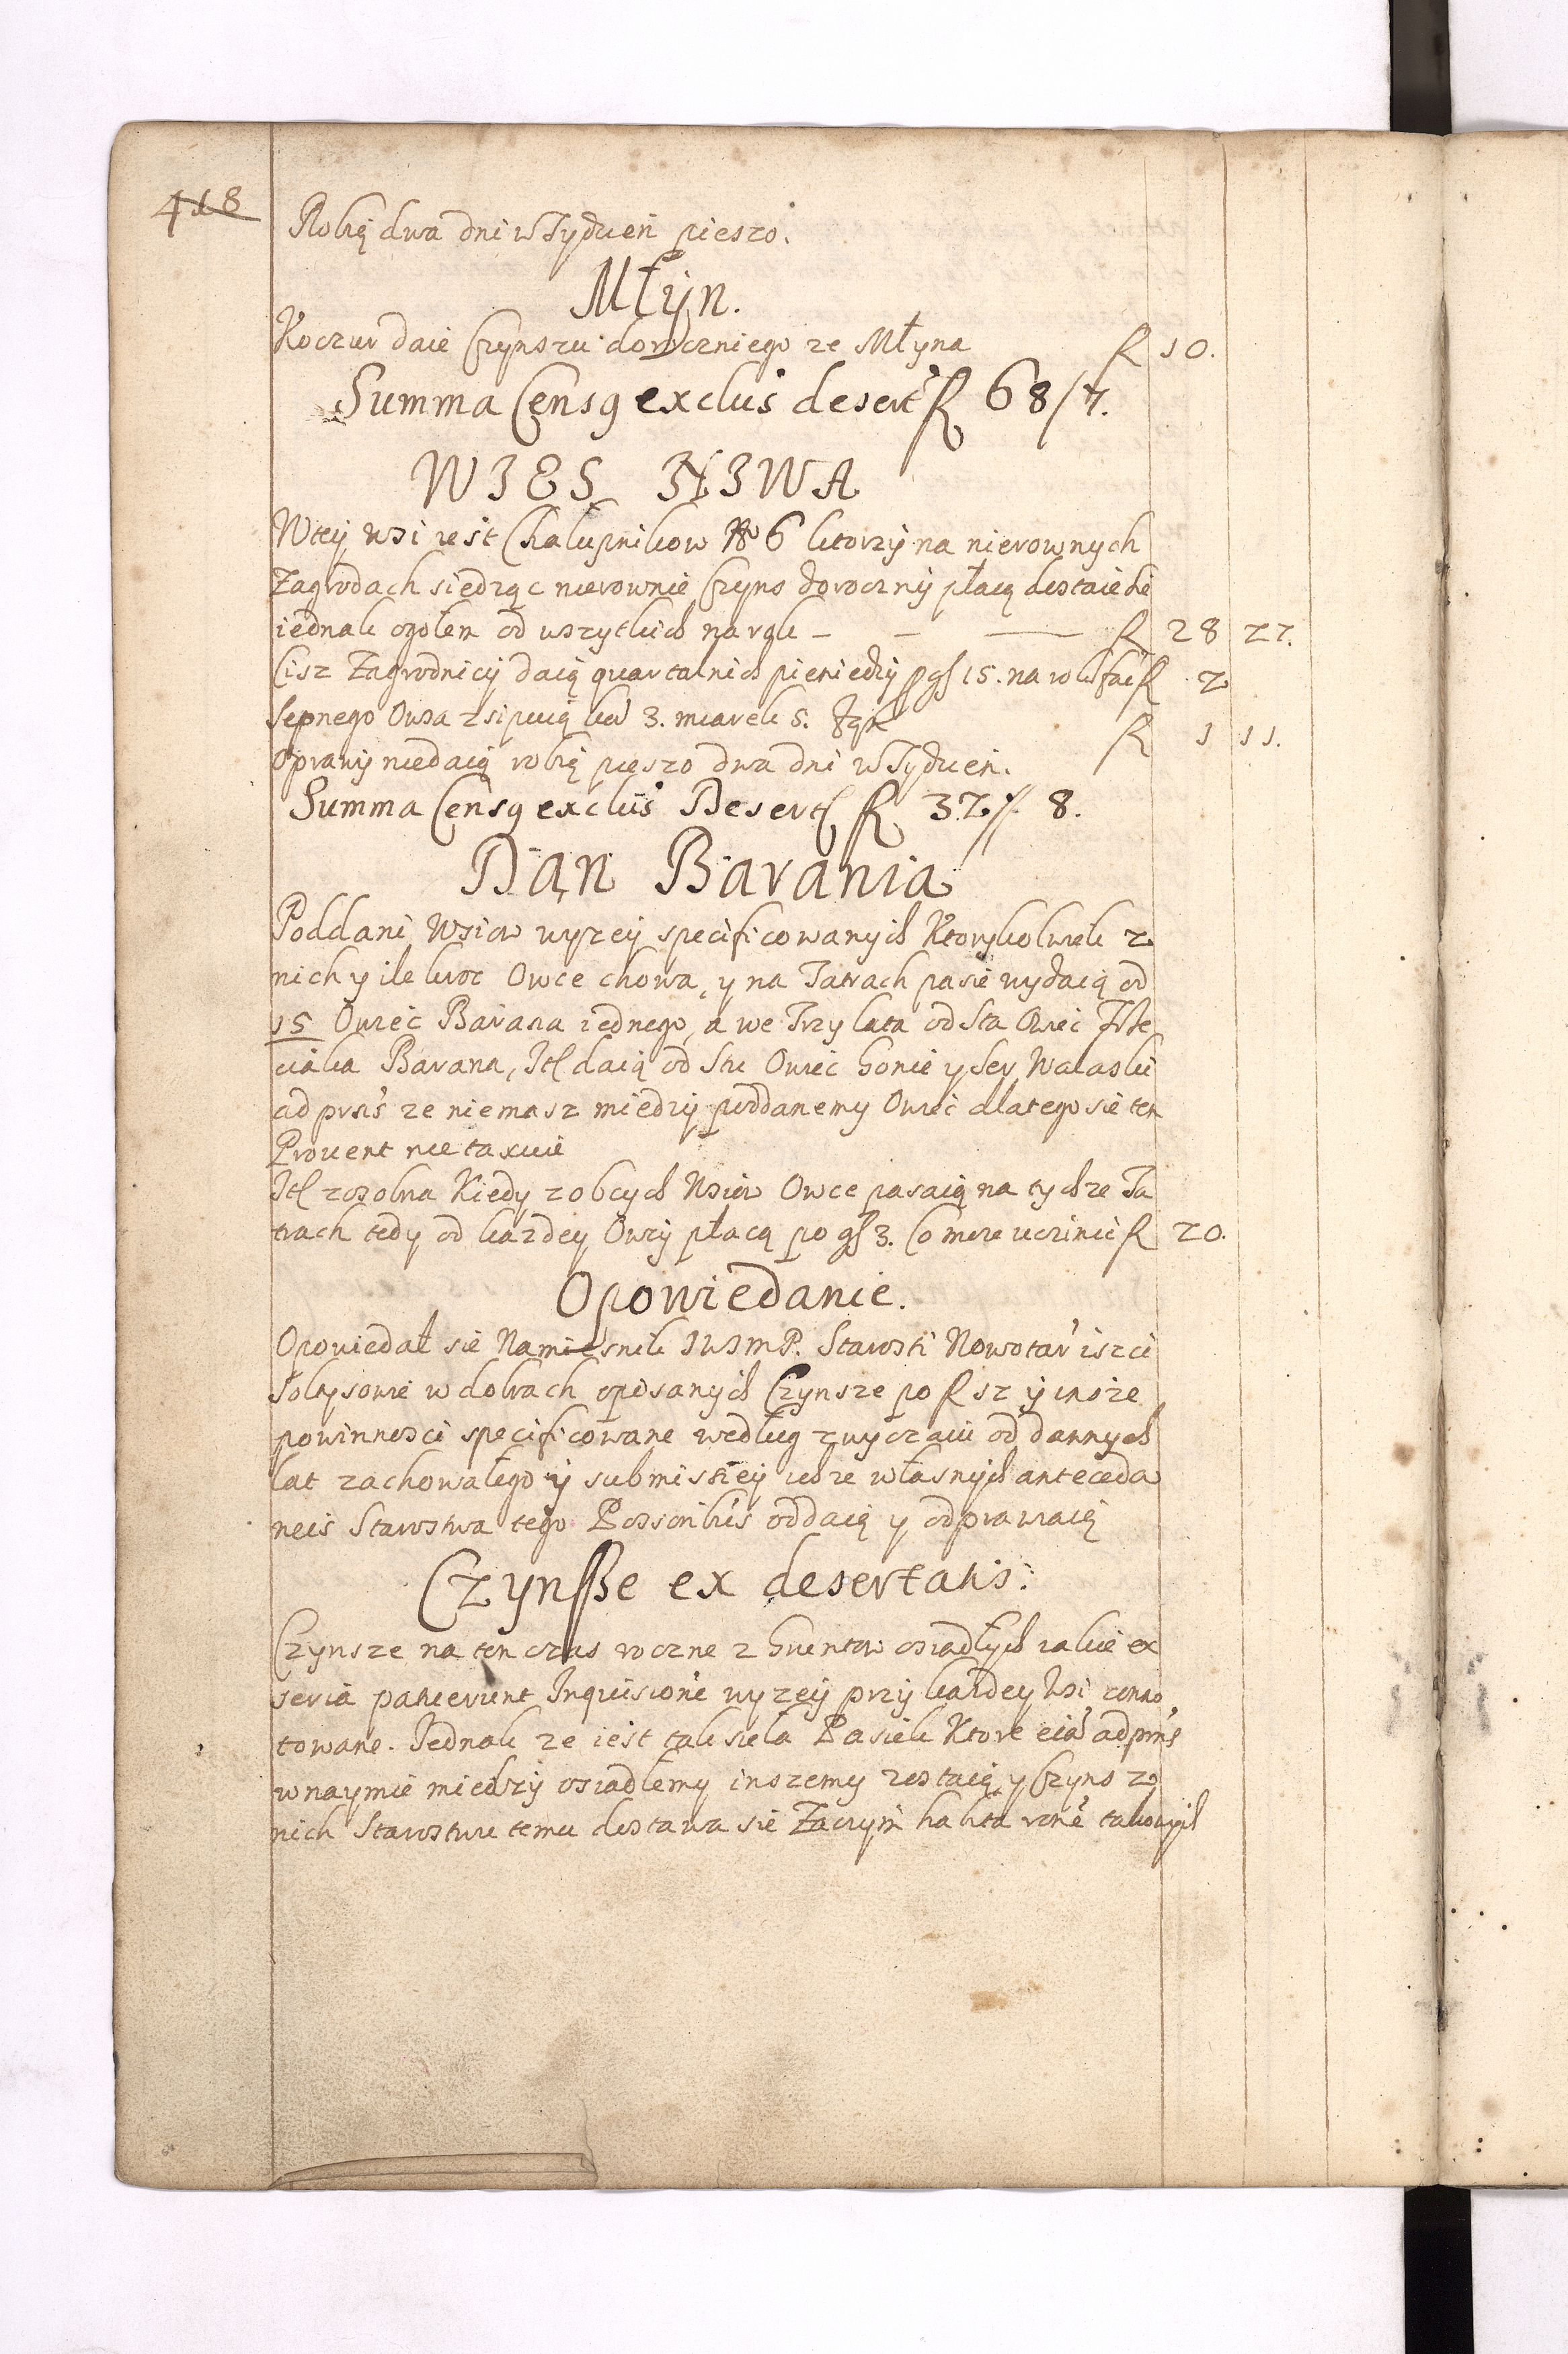 418
Robią dwa dni w Tydzień pieszo.
Młyn.
Koczur daie Czynszu doroczniego ze Młyna R 10.
Summa Censq exclus desert R 68/7.
WIES NIWA
W tey wsi iest Chalupnikow N 6 ktorzy na nierownych
Zagrodach siedząc nierownie Czyns doroczny płacą dostaie sie
iednak ogołem od wszytkich na rok R 28 27.
Cisz Zagrodnicy daią quartalnich pieniedzy p gſ 15. na rok fac R 2
Sepnego Owsa zsipuią kor 3. miarek 5. R 1 11.
Oprawy niedaią robią pieszo dwa dni w Tydzień.
Summa Censq exclus Desert R 32// 8.
Dan Barania
Poddani Wsiow wyzey specificowanych Ktorykolwiek z
nich y ile kroc Owce chowa, y na Tatrach pasie wydaią od
15 Owiec Barana iednego, a we Trzy lata od Sta Owiec
ciaka Barana, Itl daią od Stu Owiec Gonie y Ser Walaski
ad prns ze niemasz miedzy poddanemy Owiec dlatego sie ten
Prouent nie taxuie
Itl zosobna Kiedy z obcych Wsiow Owce pasaią na tychze Ta
trach tedy od kazdey Owcy płacą po gſ 3. Co moze uczinic R 20.
Opowiedanie.
Opowiedał sie Namiesnik JWJmP. Starosti Nowotar isz ci
Soltysowie w dobrach opisanych Czynsze po R 12 y insze
powinnosci specificowane wedlug zwyczaiu od dawnych
lat zachowałego y submissiey ich ze własnych anteceda
neis Starostwa tego Possoribus oddaią y odprawiaią
Czynsse ex desertatis.
Czynsze na ten czas roczne z Gruntow osiadłych iakie ex
seria patuerunt Inquisione wyzey przy kazdey Wsi zonno
towane. Jednak ze iest tak siela Pasiek Ktore eiad ad prns
w naymie miedzy osiadlemy inszemy zostaią y Czyns z
nich Starostwu temu dostawa sie Zaczym habita rone takowych